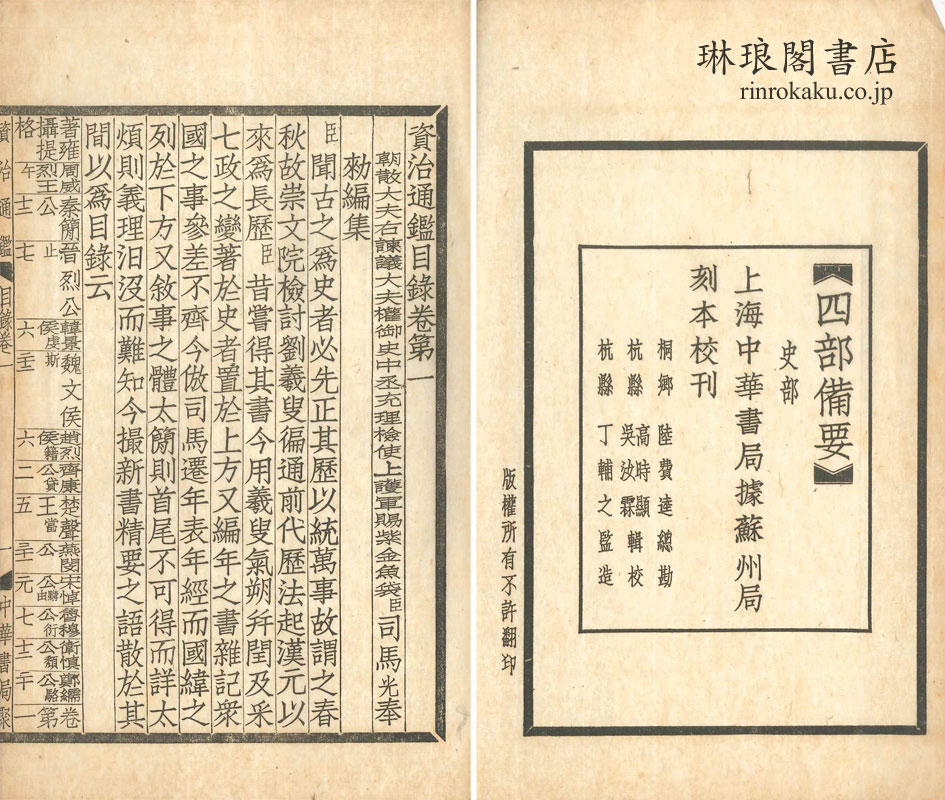 琳琅閣書店
rinrokaku.co.jp
四部備要
史部
上海中華書局據蘇州局
刻本校刊
桐鄉 陸費逵總勘
杭縣 高時顯 吳汝霖 輯校
杭縣 丁輔之監造
版權所有不許翻印
資治通鑑目錄卷第一
朝散大夫右諫議大夫權御史中丞充理檢使上護軍賜紫金魚袋臣司馬光奉
勑編集
臣聞古之爲史者必先正其歷以統萬事故謂之春
秋故崇文院檢討劉羲叟徧通前代歷法起漢元以
來爲長歷臣昔嘗得其書今用羲叟氣朔幷閏及采
七政之變著於史者置於上方又編年之書雜記衆
國之事參差不齊今倣司馬遷年表年經而國緯之
列於下方又敘事之體太簡則首尾不可得而詳太
煩則義理汩沒而難知今撮新書精要之語散於其
間以爲目錄云
著雍 周威 秦簡 晉烈公 韓景 魏文侯 趙烈 齊康 楚聲 燕閔 宋悼 魯穆 衛慎 鄭繻 卷
攝提 烈王 公 止 侯虔 斯 侯籍 公貸 王當 公 公購由 公衍 公頹 公駘 第
格 六 六 二 五 元 七 一
資治通鑑 目錄卷一 一 中華書局聚